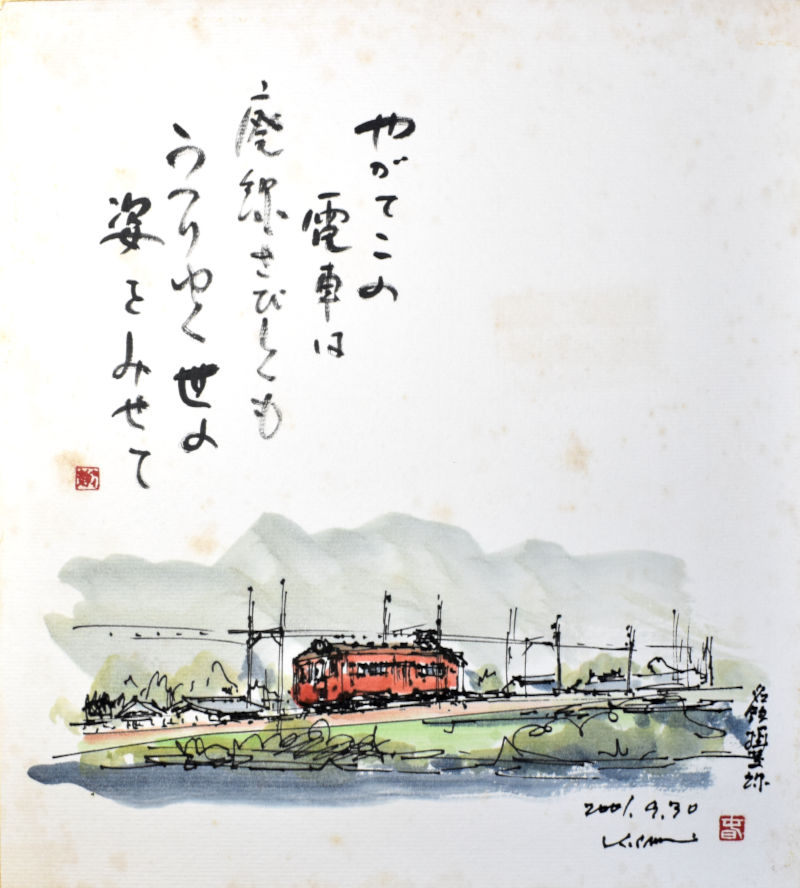 やがてこの
電車は
廃線さびしくも
うつりゆく世の
姿をみせて
名鉄揖斐線
2001.9.30